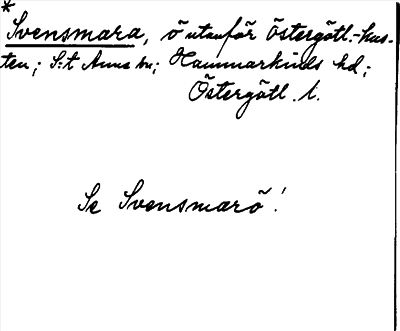 *
Svensmara, ö utanför Östergötl.-kus-
ten; S:t Anna sn; Hammarkinds hd;
Östergötl. l.
Se Svensmarö!